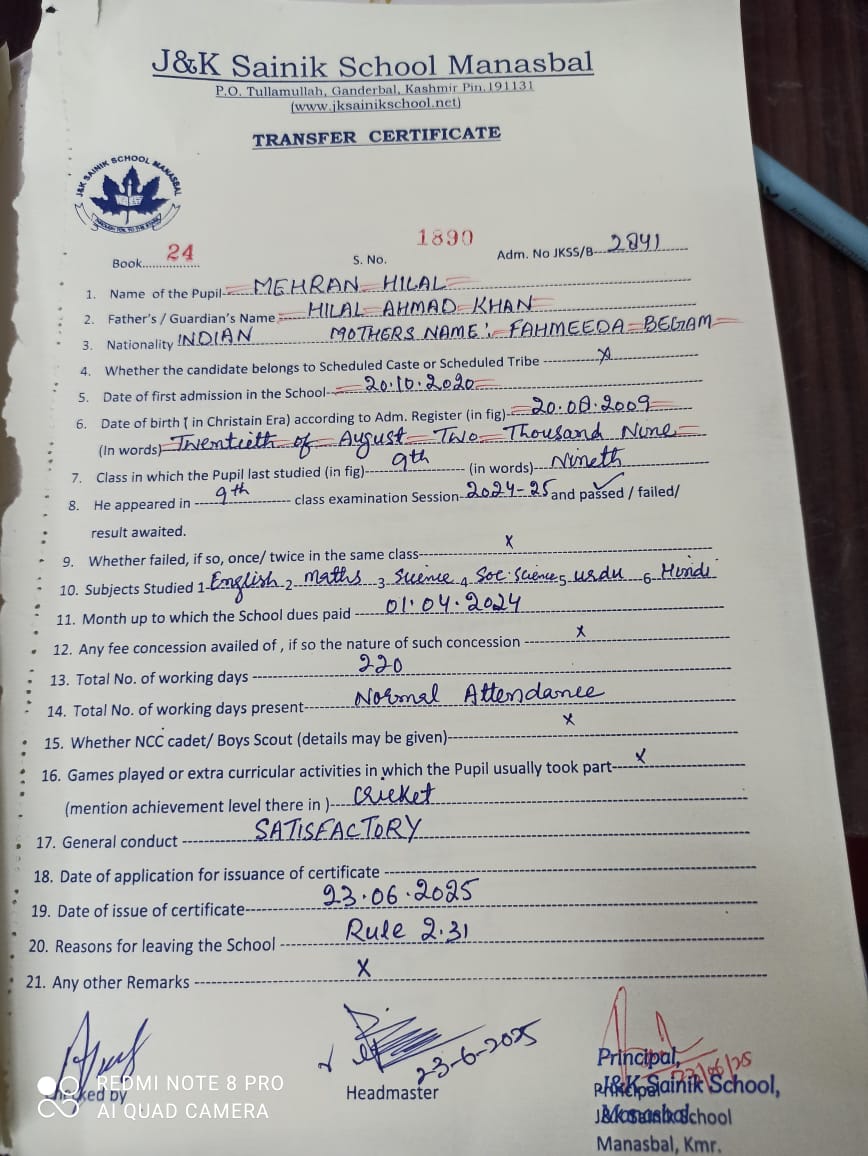 J&K Sainik School Manasbal
P.O. Tullamullah, Ganderbal, Kashmir Pin.191131
(www.jksainikschool.net)
TRANSFER CERTIFICATE
J&K SAINIK SCHOOL MANASBAL
Book 24 S. No. 1890 Adm. No JKSS/B- 2841
1. Name of the Pupil- MEHRAN HILAL
2. Father's / Guardian's Name HILAL AHMAD KHAN
3. Nationality INDIAN MOTHERS NAME: FAHMEEDA BEGAM
4. Whether the candidate belongs to Scheduled Caste or Scheduled Tribe X
5. Date of first admission in the School- 20.10.2020
6. Date of birth ( in Christain Era) according to Adm. Register (in fig) 20.08.2009
(In words) Twentieth of August Two Thousand Nine
7. Class in which the Pupil last studied (in fig) 9th (in words) Nineth
8. He appeared in 9th class examination Session 2024-25 and passed / failed/
result awaited.
9. Whether failed, if so, once/ twice in the same class X
10. Subjects Studied 1 English 2 Maths 3 Science 4 Soc. Science 5 Urdu 6 Hindi
11. Month up to which the School dues paid 01.04.2024
12. Any fee concession availed of , if so the nature of such concession X
13. Total No. of working days 220
14. Total No. of working days present Normal Attendance
15. Whether NCC cadet/ Boys Scout (details may be given) X
16. Games played or extra curricular activities in which the Pupil usually took part X
(mention achievement level there in ) Cricket
17. General conduct SATISFACTORY
18. Date of application for issuance of certificate
19. Date of issue of certificate 23.06.2025
20. Reasons for leaving the School Rule 2.31
21. Any other Remarks X
23-6-2025
Checked by Headmaster Principal,
J&K Sainik School,
Manasbal
Principal
J&K Sainik School
Manasbal, Kmr.
REDMI NOTE 8 PRO
AI QUAD CAMERA